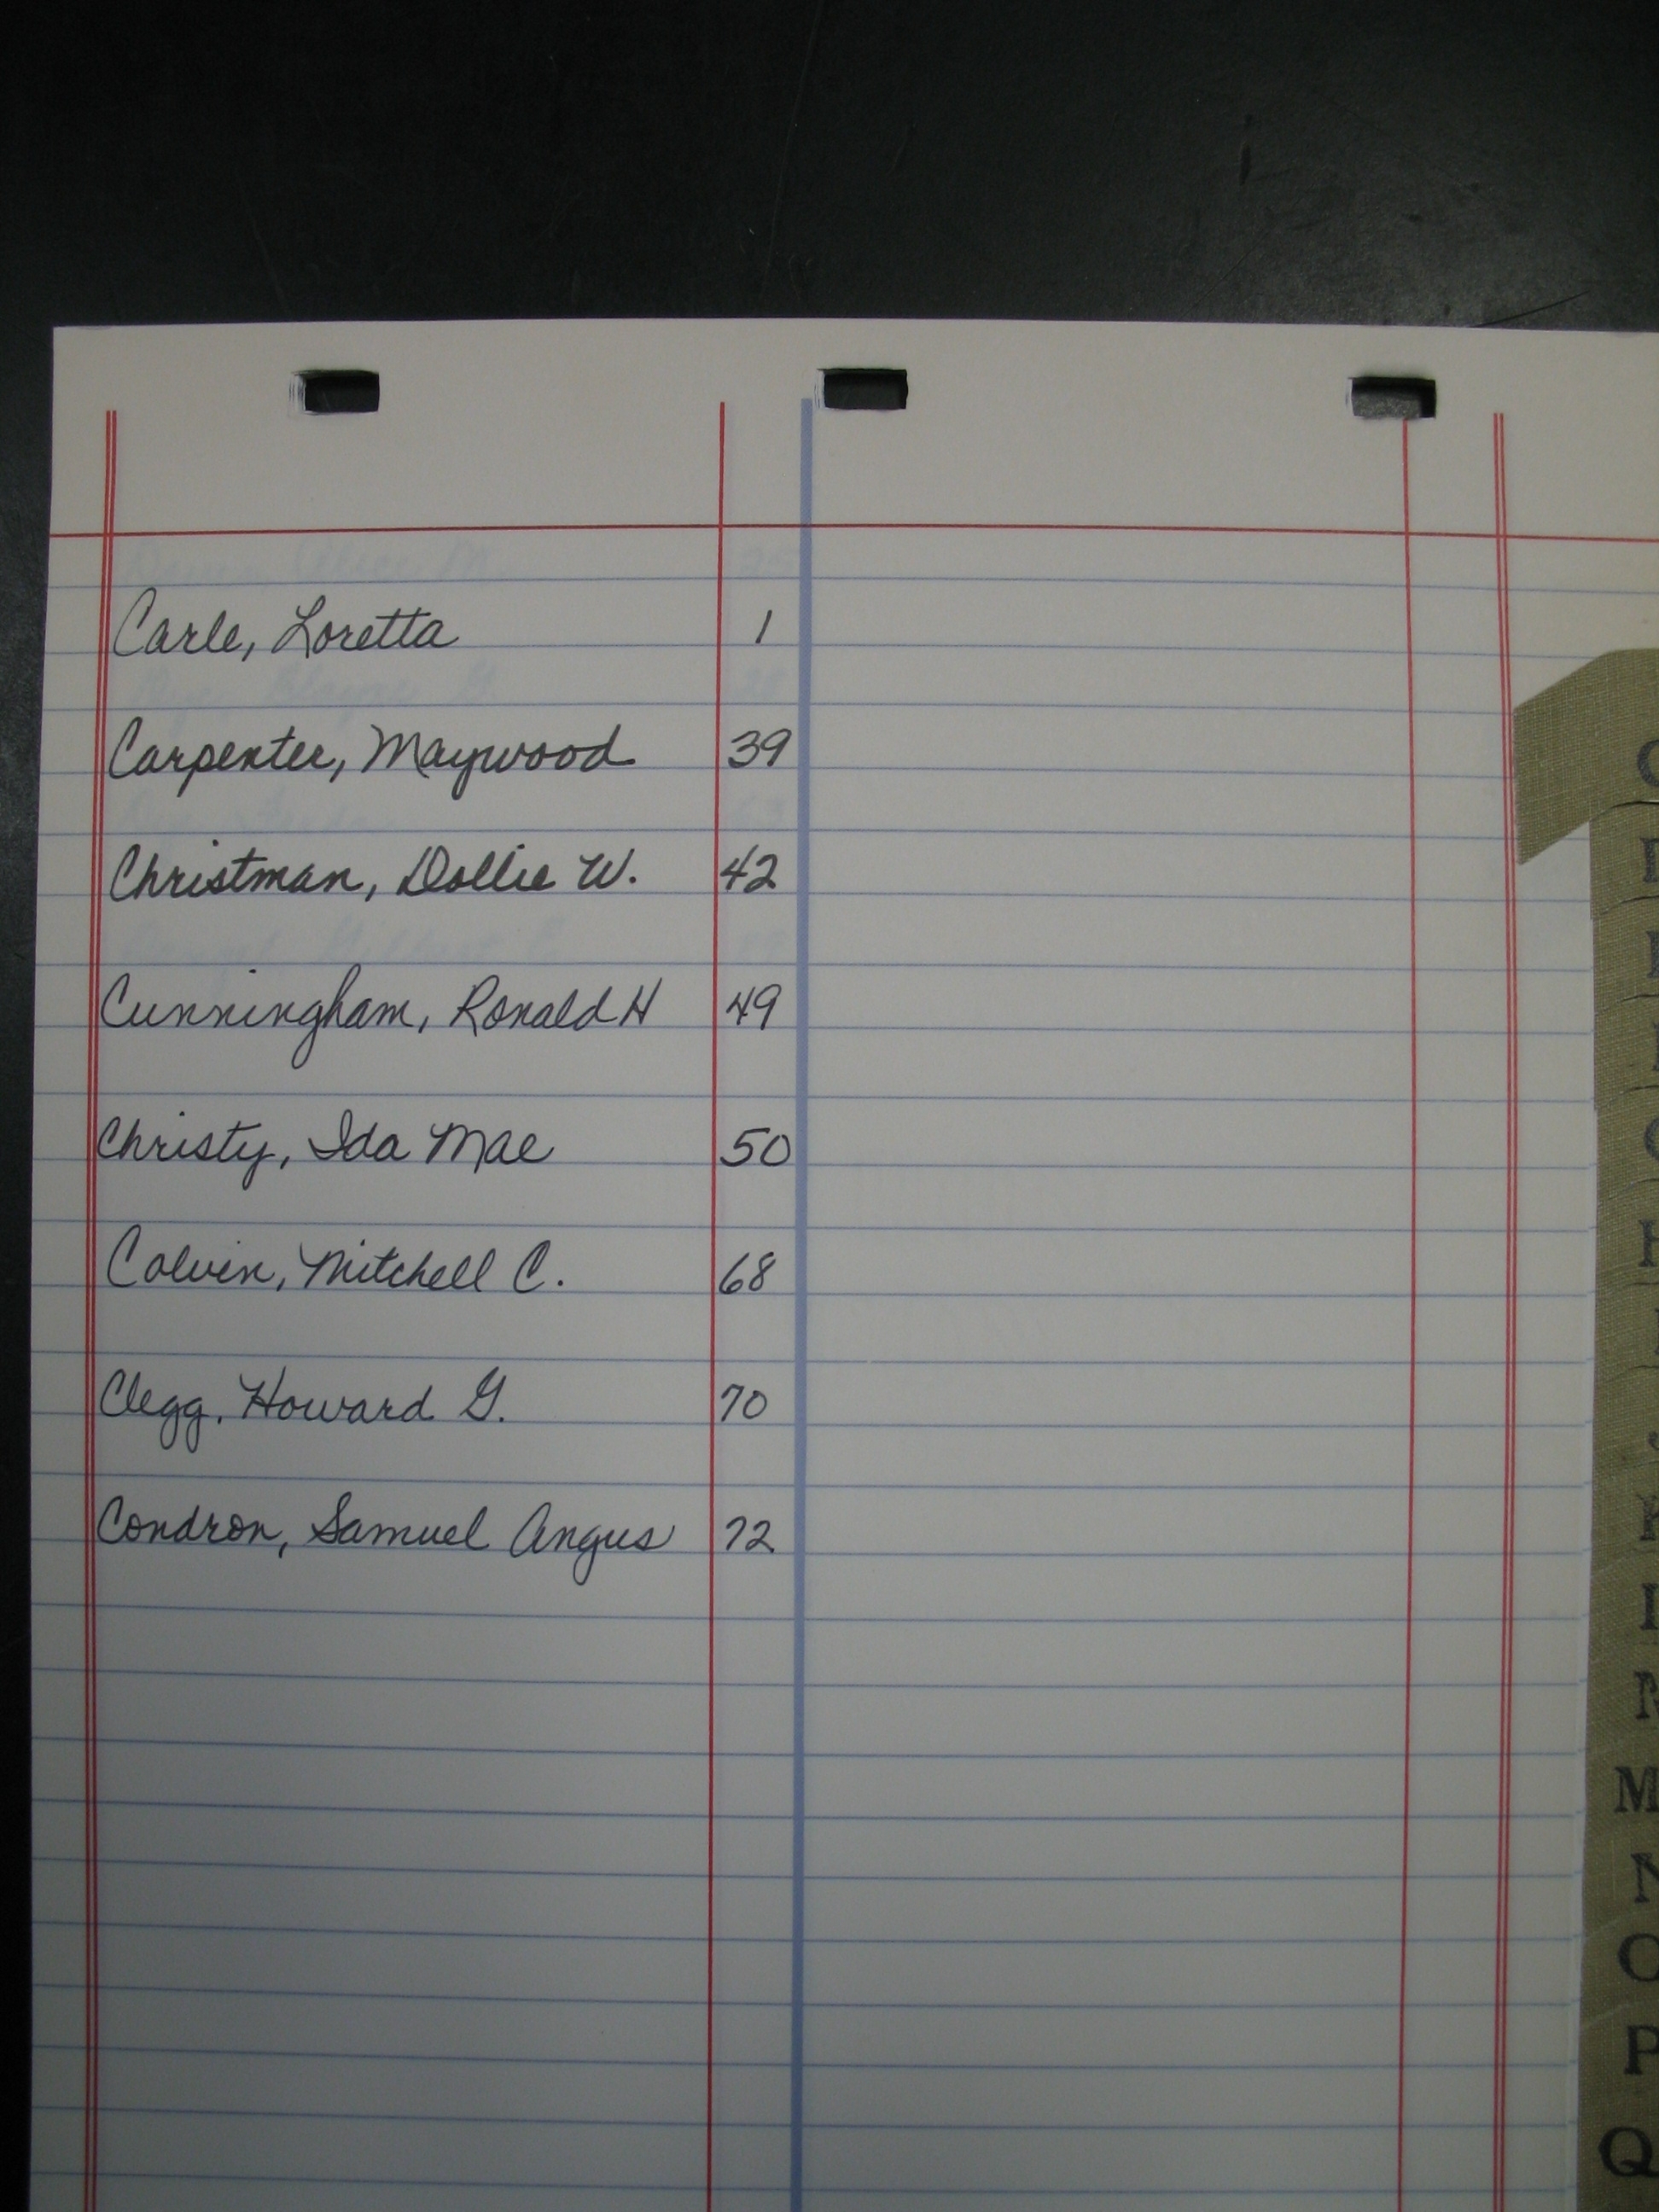 Carle, Loretta 1
Carpenter, Maywood 39
Christman, Dollie W. 42
Cunningham, Ronald H 49
Christy, Ida Mae 50
Colvin, Mitchell C. 68
Clegg, Howard G. 70
Condron, Samuel Angus 72
M
O
P
Q